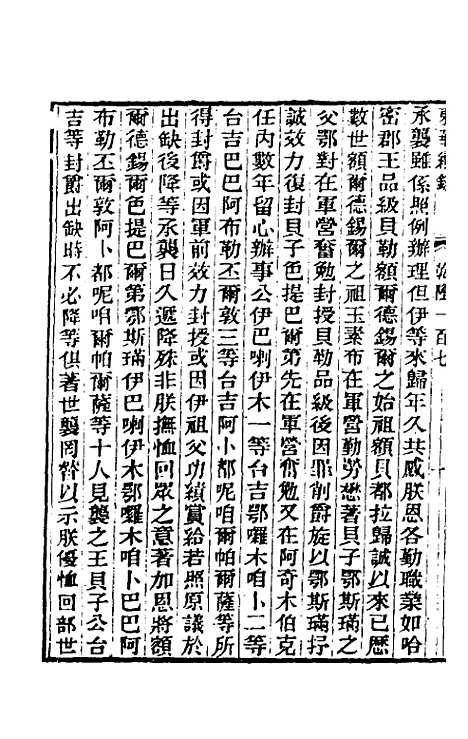 東華續錄 乾隆一百七
承襲雖係照例辦理但伊等來歸年久共感朕恩各勤職業如哈
密郡王品級貝勒額爾德錫爾之始祖額貝都拉歸誠以來已歷
數世額爾德錫爾之祖玉素布在軍營勤勞懋著貝子鄂斯璊之
父鄂對在軍營奮勉封授貝勒品級後因罪削爵旋以鄂斯璊抒
誠效力復封貝子色提巴爾第先在軍營奮勉又在阿奇木伯克
任內數年留心辦事公伊巴喇伊木一等台吉鄂囉木咱卜二等
台吉巴巴阿布勒丕爾敦三等台吉阿卜都呢咱爾帕爾薩等所
得封爵或因軍前效力封授或因伊祖父功績賞給若照原議於
出缺後降等承襲日久遞降殊非朕撫恤回眾之意著加恩將額
爾德錫爾色提巴爾第鄂斯璊伊巴喇伊木鄂囉木咱卜巴巴阿
布勒丕爾敦阿卜都呢咱爾帕爾薩等十人見襲之王貝子公台
吉等封爵出缺時不必降等俱著世襲罔替以示朕優恤回部世